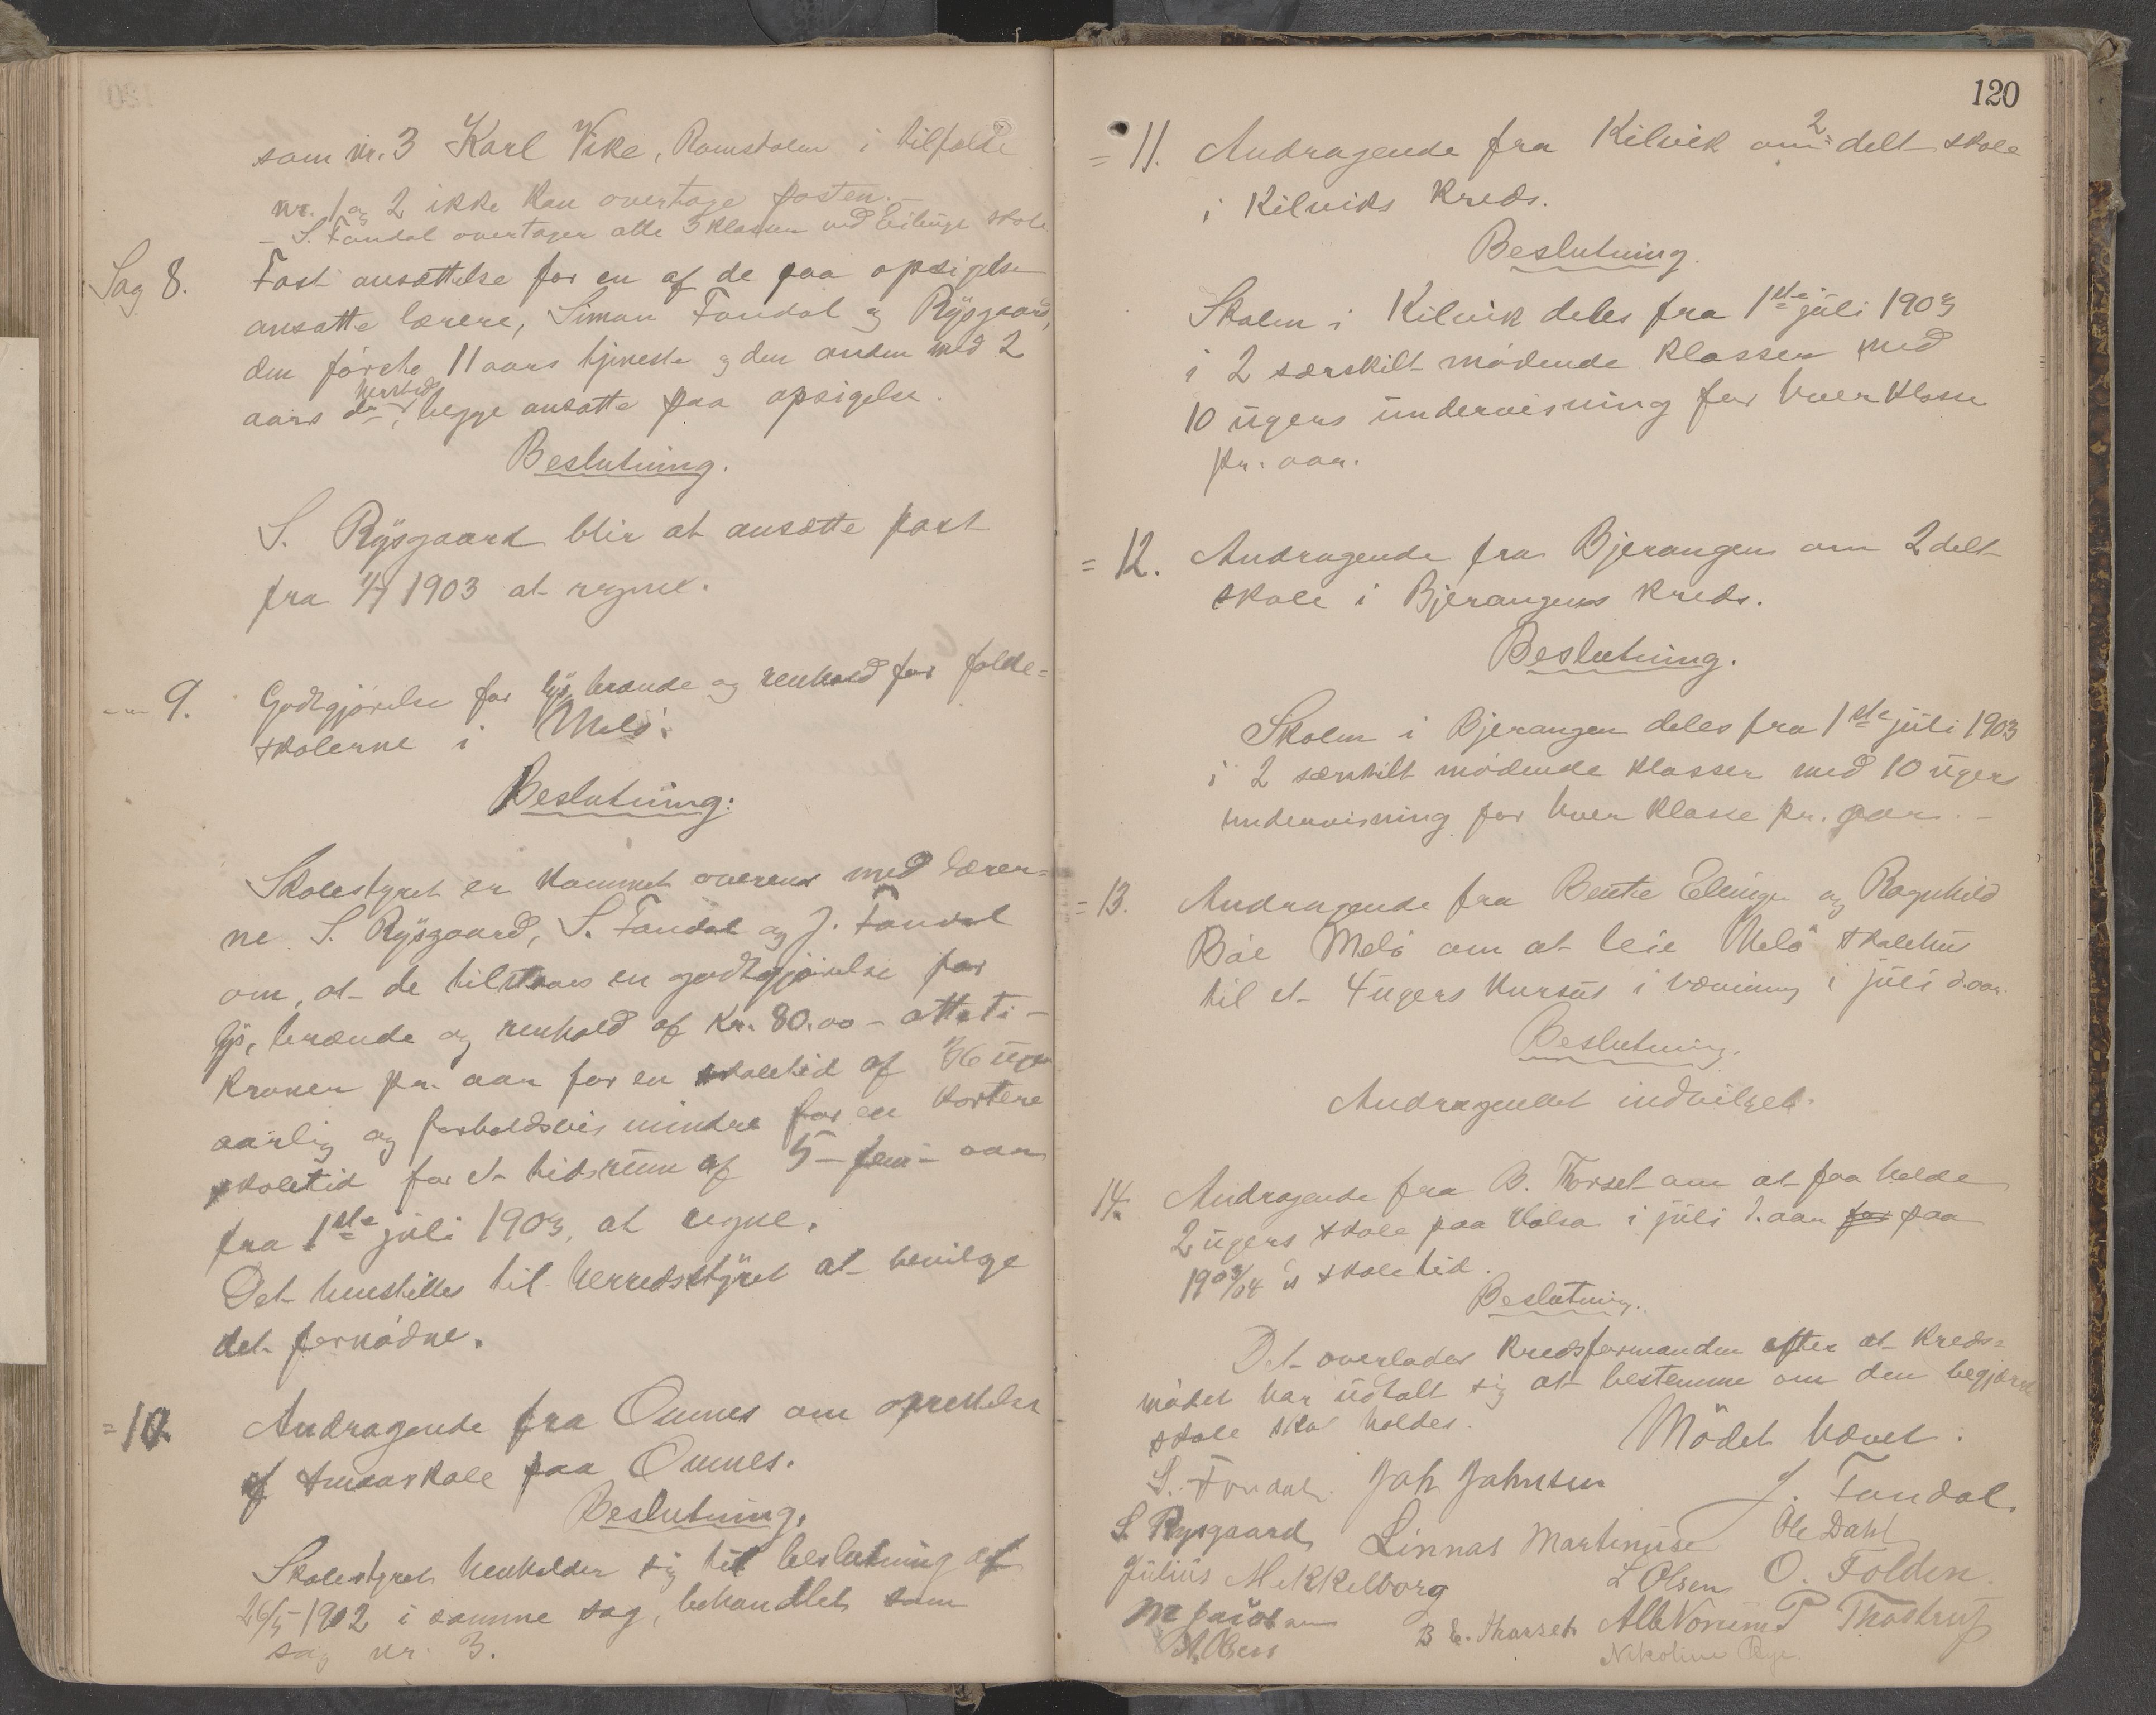 som nr. 3 Karl Vike, Ramsholm i tilfælde
nr. 1 og 2 ikke kan overtage posten.
- S. Fondal overtager alle 3 klasser ved Eilinge skole
Sag 8. Fast ansættelse for en af de paa opsigelse
ansatte lærere, Simon Fondal og Rÿsgaard,
den første 11 aars tjeneste og den anden med 2
aars do hersteds, begge ansatte paa opsigelse.
Beslutning.
S. Rÿsgaard blir at ansætte fast
fra 1/7 1903 at regne.
9. Godtgjørelse for lÿs, brænde og renhold for folke=
skolerne i Melø.
Beslutning:
Skolestyret er kommet overens med lærer=
ne S. Rÿsgaard, S. Fondal og J. Fondal
om, at de tilstaaes en godtgjørelse for
lÿs, brænde og renhold af Kr. 80.00 - otteti -
kroner pr. aar for en skoletid af 36 uger
aarlig og forholdsvis mindre for en kortere
skoletid for et tidsrum af 5 - fem - aar
fra 1ste juli 1903, at regne.
Det henstilles til herredsstÿret at bevilge
det fornødne.
= 10. Andragende fra Ornes om oprettelse
af smaaskole paa Ornes.
Beslutning.
Skolestyret henholder sig til beslutning af
26/5 1902 i samme sag, behandlet som
sag nr. 3.
120
= 11. Andragende fra Kilvik om 2 delt skole
i Kilviks kreds.
Beslutning.
Skolen i Kilvik deles fra 1ste juli 1903
i 2 særskilt mødende klasser med
10 ugers undervisning for hver klasse
pr. aar.
= 12. Andragende fra Bjerangen om 2 delt
skole i Bjerangens kreds.
Beslutning.
Skolen i Bjerangen deles fra 1ste juli 1903
i 2 særskilt mødende klasser med 10 ugers
undervisning for hver klasse pr. aar. -
= 13. Andragende fra Bentie Ellinge og Ragnhild
Bøe Melø om at leie Melø skolehus
til et 4 ugers kursus i vævning i juli d. aar.
Beslutning.
Andragendet indvilget.
14. Andragende fra B. Thorset om at faa holde
2 ugers skole paa Halsa i juli d. aar for paa
1903/04's skoletid.
Beslutning.
Det overlades kredsformanden efter at kreds=
mødet har udtalt sig at bestemme om den begjærte
skole skal holdes.
Mødet hævet.
S. Fondal. Joh Johnsen J. Fondal.
S. Rysgaard Linnas Martinusen Ole Dahl
Julius Mekkelborg L Olsen O. Folden.
M Jacobsen B E. Thorset Alb Vorum P Thostrup
A. Olsen Nikoline Bye.